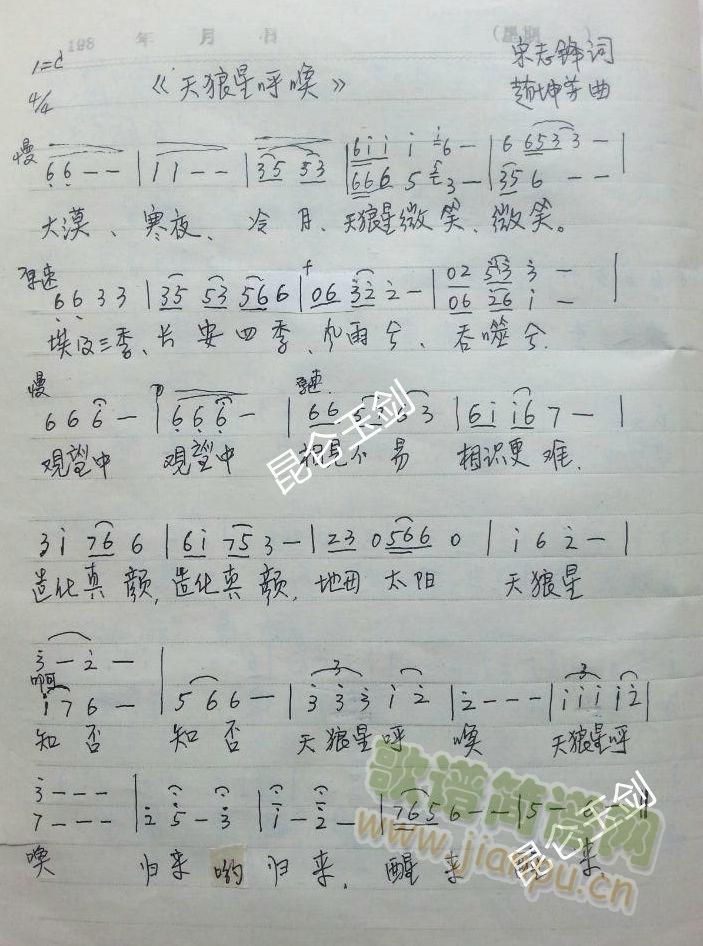 198 年 月 日 (星期 )
1=d
4/4
《天狼星呼唤》
宋志锋词
赵坤芳曲
慢
6 6 - - | 1 1 - - | 35 53 | 6i i i i6 - | 6 6533 - |
666 5 3 - | 35 6 - -
大漠、寒夜、冷月、天狼星微笑、微笑。
6 6 3 3 | 35 53 56 6 | 06 32 2 - | 02 53 3 - |
06 26 i -
埃及三季、长安四季、风雨兮、吞噬兮.
慢
6 6 6 - | 6 6 6 - | 66 53 63 | 6i i6 7 - |
观望中 观望中 相见不易 相识更难.
3 i 76 6 | 6i 75 3 - | 23 0 566 0 | i 6 2 - |
造化真颜,造化真颜,地田 太阳 天狼星
3 - 2 -
啊
i 7 6 - | 5 6 6 - | 3 3 3 i 2 | 2 - - - | i i i i 2 |
知否 知否 天狼星呼 唤 天狼星呼
3 - - -
7 - - - | 2 5 - 3 | i - 2 - | 7656 - - | 5 - 6 - ||
唤 归来哟归来. 醒来 醒来.
昆仑玉剑
昆仑玉剑
歌谱简谱网
www.jianpu.cn